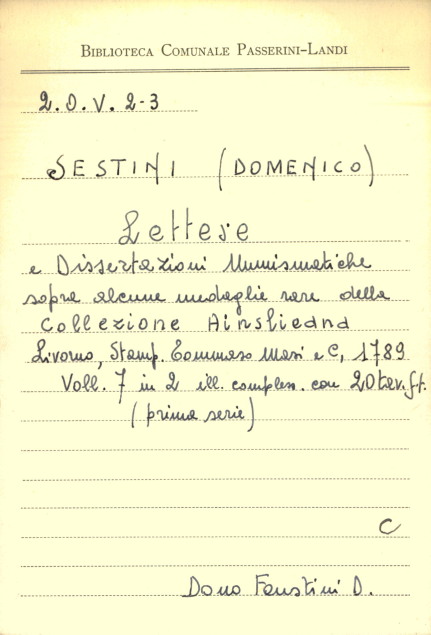 BIBLIOTECA COMUNALE PASSERINI-LANDI
2. O. V. 2-3
SESTINI (DOMENICO)
Lettere
e Dissertazioni Numismatiche
sopra alcune medaglie rare della
Collezione Ainslieana
Livorno, Stamp. Tommaso Masi e C, 1789
Voll. 7 in 2 ill. compless. con 20 tav. f.t.
(prima serie)
C
Dono Faustini D.